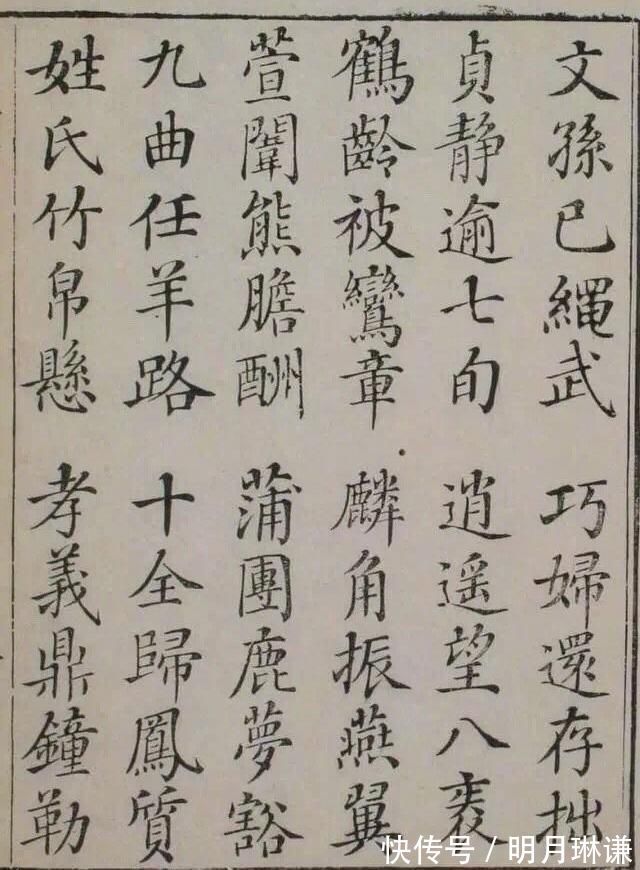 文孫已繩武 巧婦還存拙
貞靜逾七旬 逍遥望八袠
鶴齡被鸞章 麟角振燕翼
萱闈熊膽酬 蒲團鹿夢豁
九曲任羊路 十全歸鳳質
姓氏竹帛懸 孝義鼎鐘勒
快传号/明月琳谦